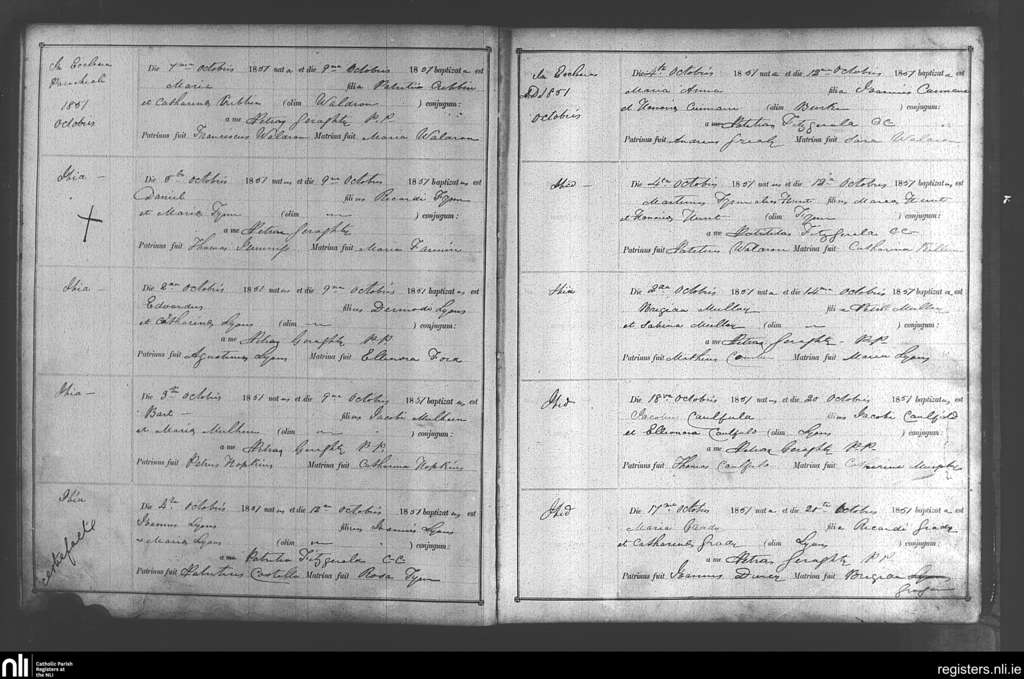 In Ecclesia
Parocheali
1851
Octobris
Die 7ma Octobris 1851 nata et die 9na Octobris 1851 baptizata est
Maria filia Patritii Cribbin
et Catharina Cribbin (olim Waldron ) conjugum:
a me Petrus Geraghty P.P.
Patrinus fuit Franciscus Waldron Matrina fuit Maria Waldron
Ibid —
Die 8th Octobris 1851 natus et die 9na Octobris 1851 baptizatus est
Daniel filius Ricardi Flynn
et Maria Flynn (olim — ) conjugum:
a me Petrus Geraghty
Patrinus fuit Thomas Matrina fuit Maria
Ibid —
Die 2da Octobris 1851 natus et die 9na Octobris 1851 baptizatus est
Edvardus filius Dermodi Lyons
et Catharina Lyons (olim — ) conjugum:
a me Petrus Geraghty P.P.
Patrinus fuit Agustinus Lyons Matrina fuit Ellenora
Ibid —
Die 3th Octobris 1851 natus et die 9na Octobris 1851 baptizatus est
Bart — filius Jacobi Mulhern
et Maria Mulhern (olim — ) conjugum:
a me Petrus Geraghty P.P.
Patrinus fuit Petrus Hopkins Matrina fuit Catharina Hopkins
Ibid
Die 4th Octobris 1851 natus et die 12na Octobris 1851 baptizatus est
Joannus Lyons filius Joannis Lyons
et Maria Lyons (olim — ) conjugum:
a me Patritius Fitzgerald C C
Patrinus fuit Patritius Costello Matrina fuit Rosa Flynn
In Ecclesia
1851
Octobris
Die 4th Octobris 1851 nata et die 12na Octobris 1851 baptizata est
Maria Anna filia Joannis Cunnane
et Honoria Cunnane (olim Burke ) conjugum:
a me Patritius Fitzgerald CC
Patrinus fuit Andreas Matrina fuit Sara Waldron
Ibid —
Die 4th Octobris 1851 natus et die 12na Octobris 1851 baptizatus est
Martinus Flynn alias Hunt filius Maria Hunt
et Honoria Hunt (olim Flynn ) conjugum:
a me Patritius Fitzgerald CC
Patrinus fuit Patritius Waldron Matrina fuit Catharina
Ibid
Die 2da Octobris 1851 nata et die 14na Octobris 1851 baptizata est
Brigida Mullay filia Patt Mullay
et Sabina Mullay (olim — ) conjugum:
a me Petrus Geraghty — P.P.
Patrinus fuit Mathius Matrina fuit Maria Lyons
Ibid
Die 18na Octobris 1851 natus et die 20 Octobris 1851 baptizatus est
Jacobus Caulfield filius Jacobi Caulfield
et Ellenora Caulfield (olim Lyons ) conjugum:
a me Petrus Geraghty P.P.
Patrinus fuit Thomas Caulfield Matrina fuit Catharina Murphy
Ibid
Die 17ma Octobris 1851 nata et die 21th Octobris 1851 baptizata est
Maria Grady filia Ricardi Grady
et Catharina Grady (olim Lyons ) conjugum:
a me Petrus Geraghty P.P.
Patrinus fuit Joannus Matrina fuit Brigida
nli Catholic Parish
Registers at
the NLI
registers.nli.ie